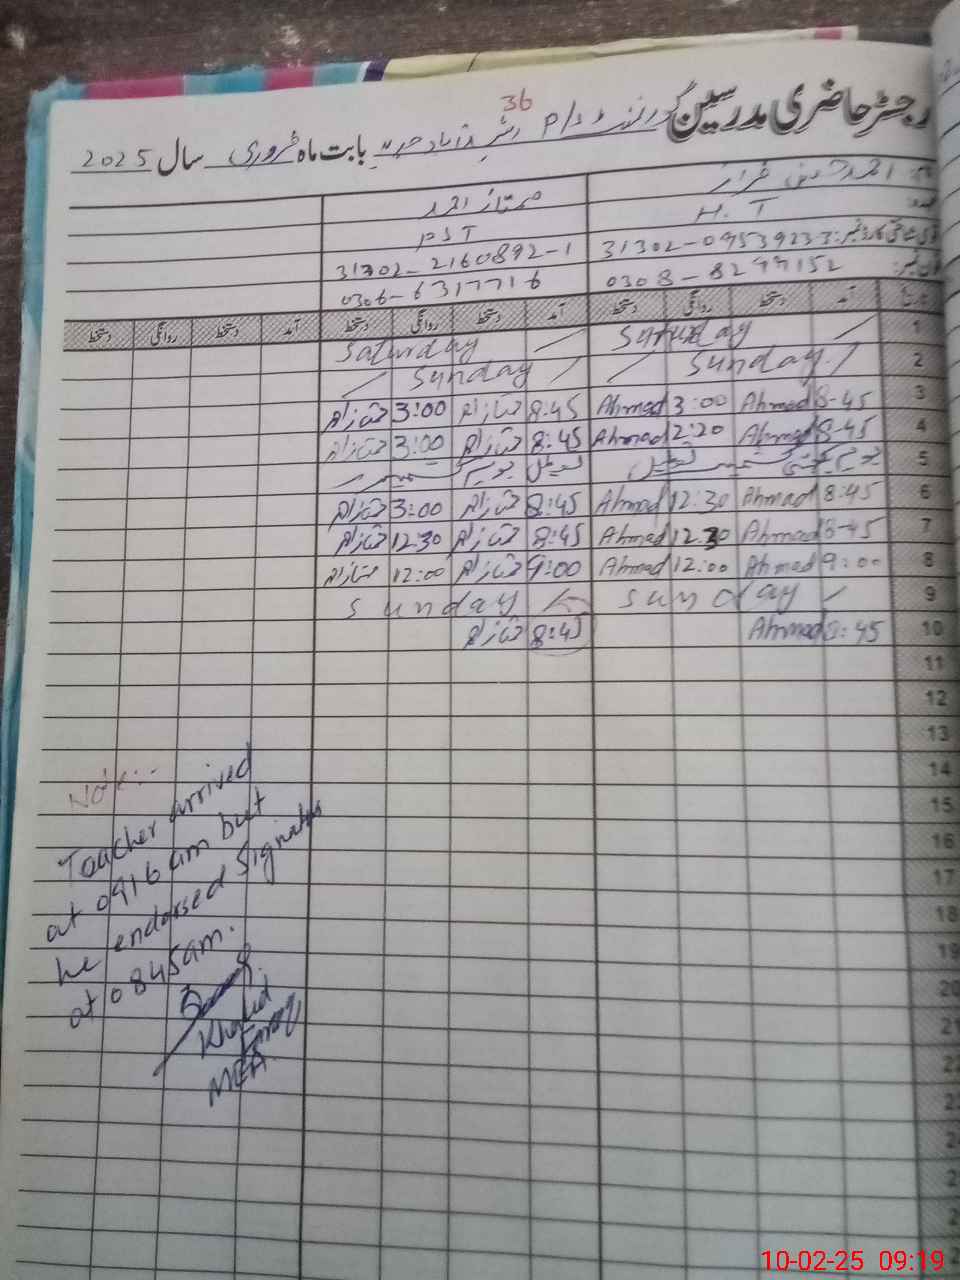 36
رجسٹر حاضری مدرسین گورنمنٹ بابت ماہ فروری سال 2025
احمد فراز
ممتاز احمد
H. T
PST
شناختی کارڈ نمبر: 31302-0953923-3
31302-2160892-1
نمبر: 0308-8299152
0306-6317716
آمد دستخط روانگی دستخط آمد دستخط روانگی دستخط آمد دستخط روانگی دستخط
1 Saturday Saturday
2 Sunday Sunday
3 8-45 Ahmad 3:00 Ahmad 8:45 ممتاز احمد 3:00 ممتاز احمد
4 8-45 Ahmad 2:20 Ahmad 8:45 ممتاز احمد 3:00 ممتاز احمد
5 یوم کشمیر تعطیل تعطیل یوم کشمیر
6 8:45 Ahmad 12.30 Ahmad 8:45 ممتاز احمد 3:00 ممتاز احمد
7 8-45 Ahmad 12.30 Ahmad 8:45 ممتاز احمد 12:30 ممتاز احمد
8 9:00 Ahmad 12:00 Ahmad 9:00 ممتاز احمد 12:00 ممتاز احمد
9 Sunday Sunday
10 8:45 Ahmad 8:45 ممتاز احمد
11
12
13
14
15
16
17
18
19
20
21
22
Note:-
Teacher arrived
at 0916 am but
he endorsed Signatures
at 0845am.
Khalid
MEA
10-02-25 09:19